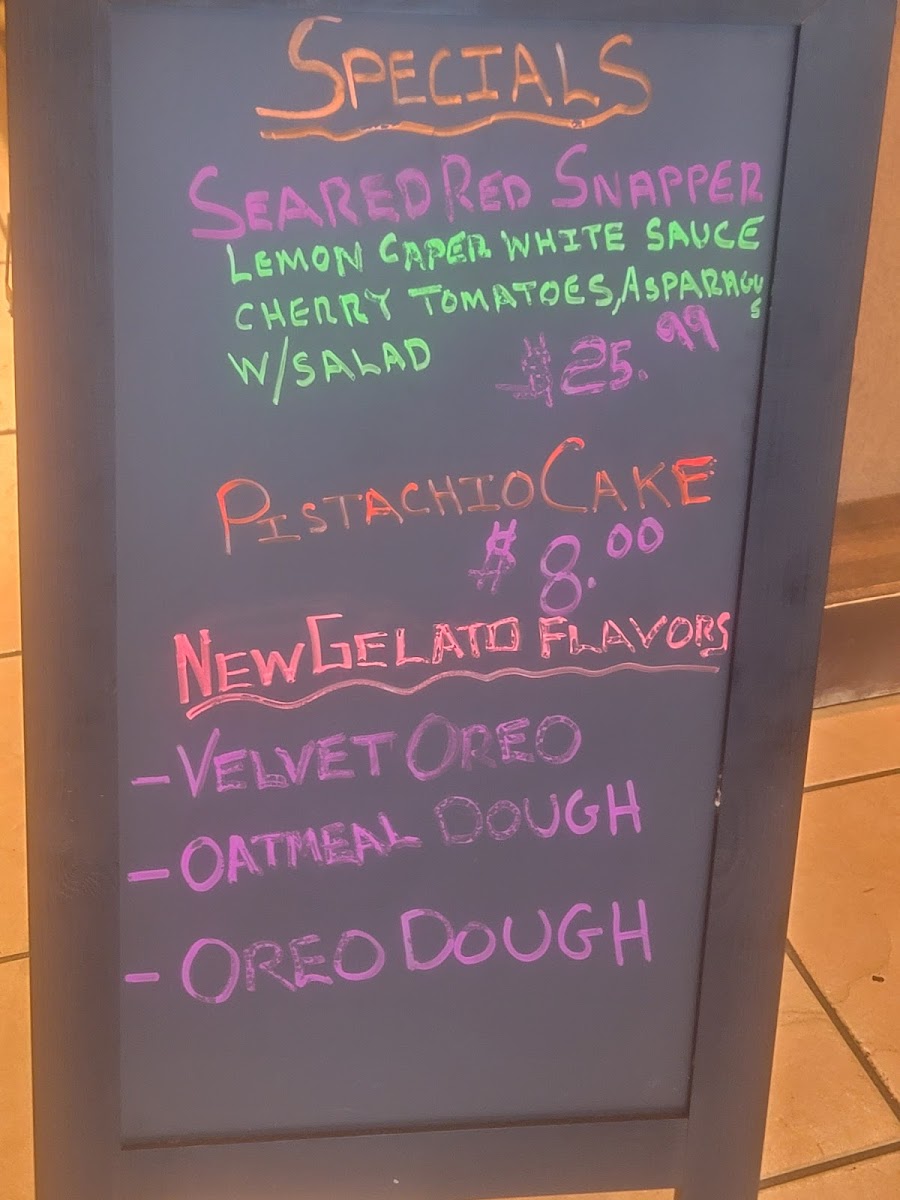 SPECIALS
SEARED RED SNAPPER
LEMON CAPER WHITE SAUCE
CHERRY TOMATOES, ASPARAGUS
W/SALAD
$25.99
PISTACHIO CAKE
$8.00
NEW GELATO FLAVORS
- VELVET OREO
- OATMEAL DOUGH
- OREO DOUGH